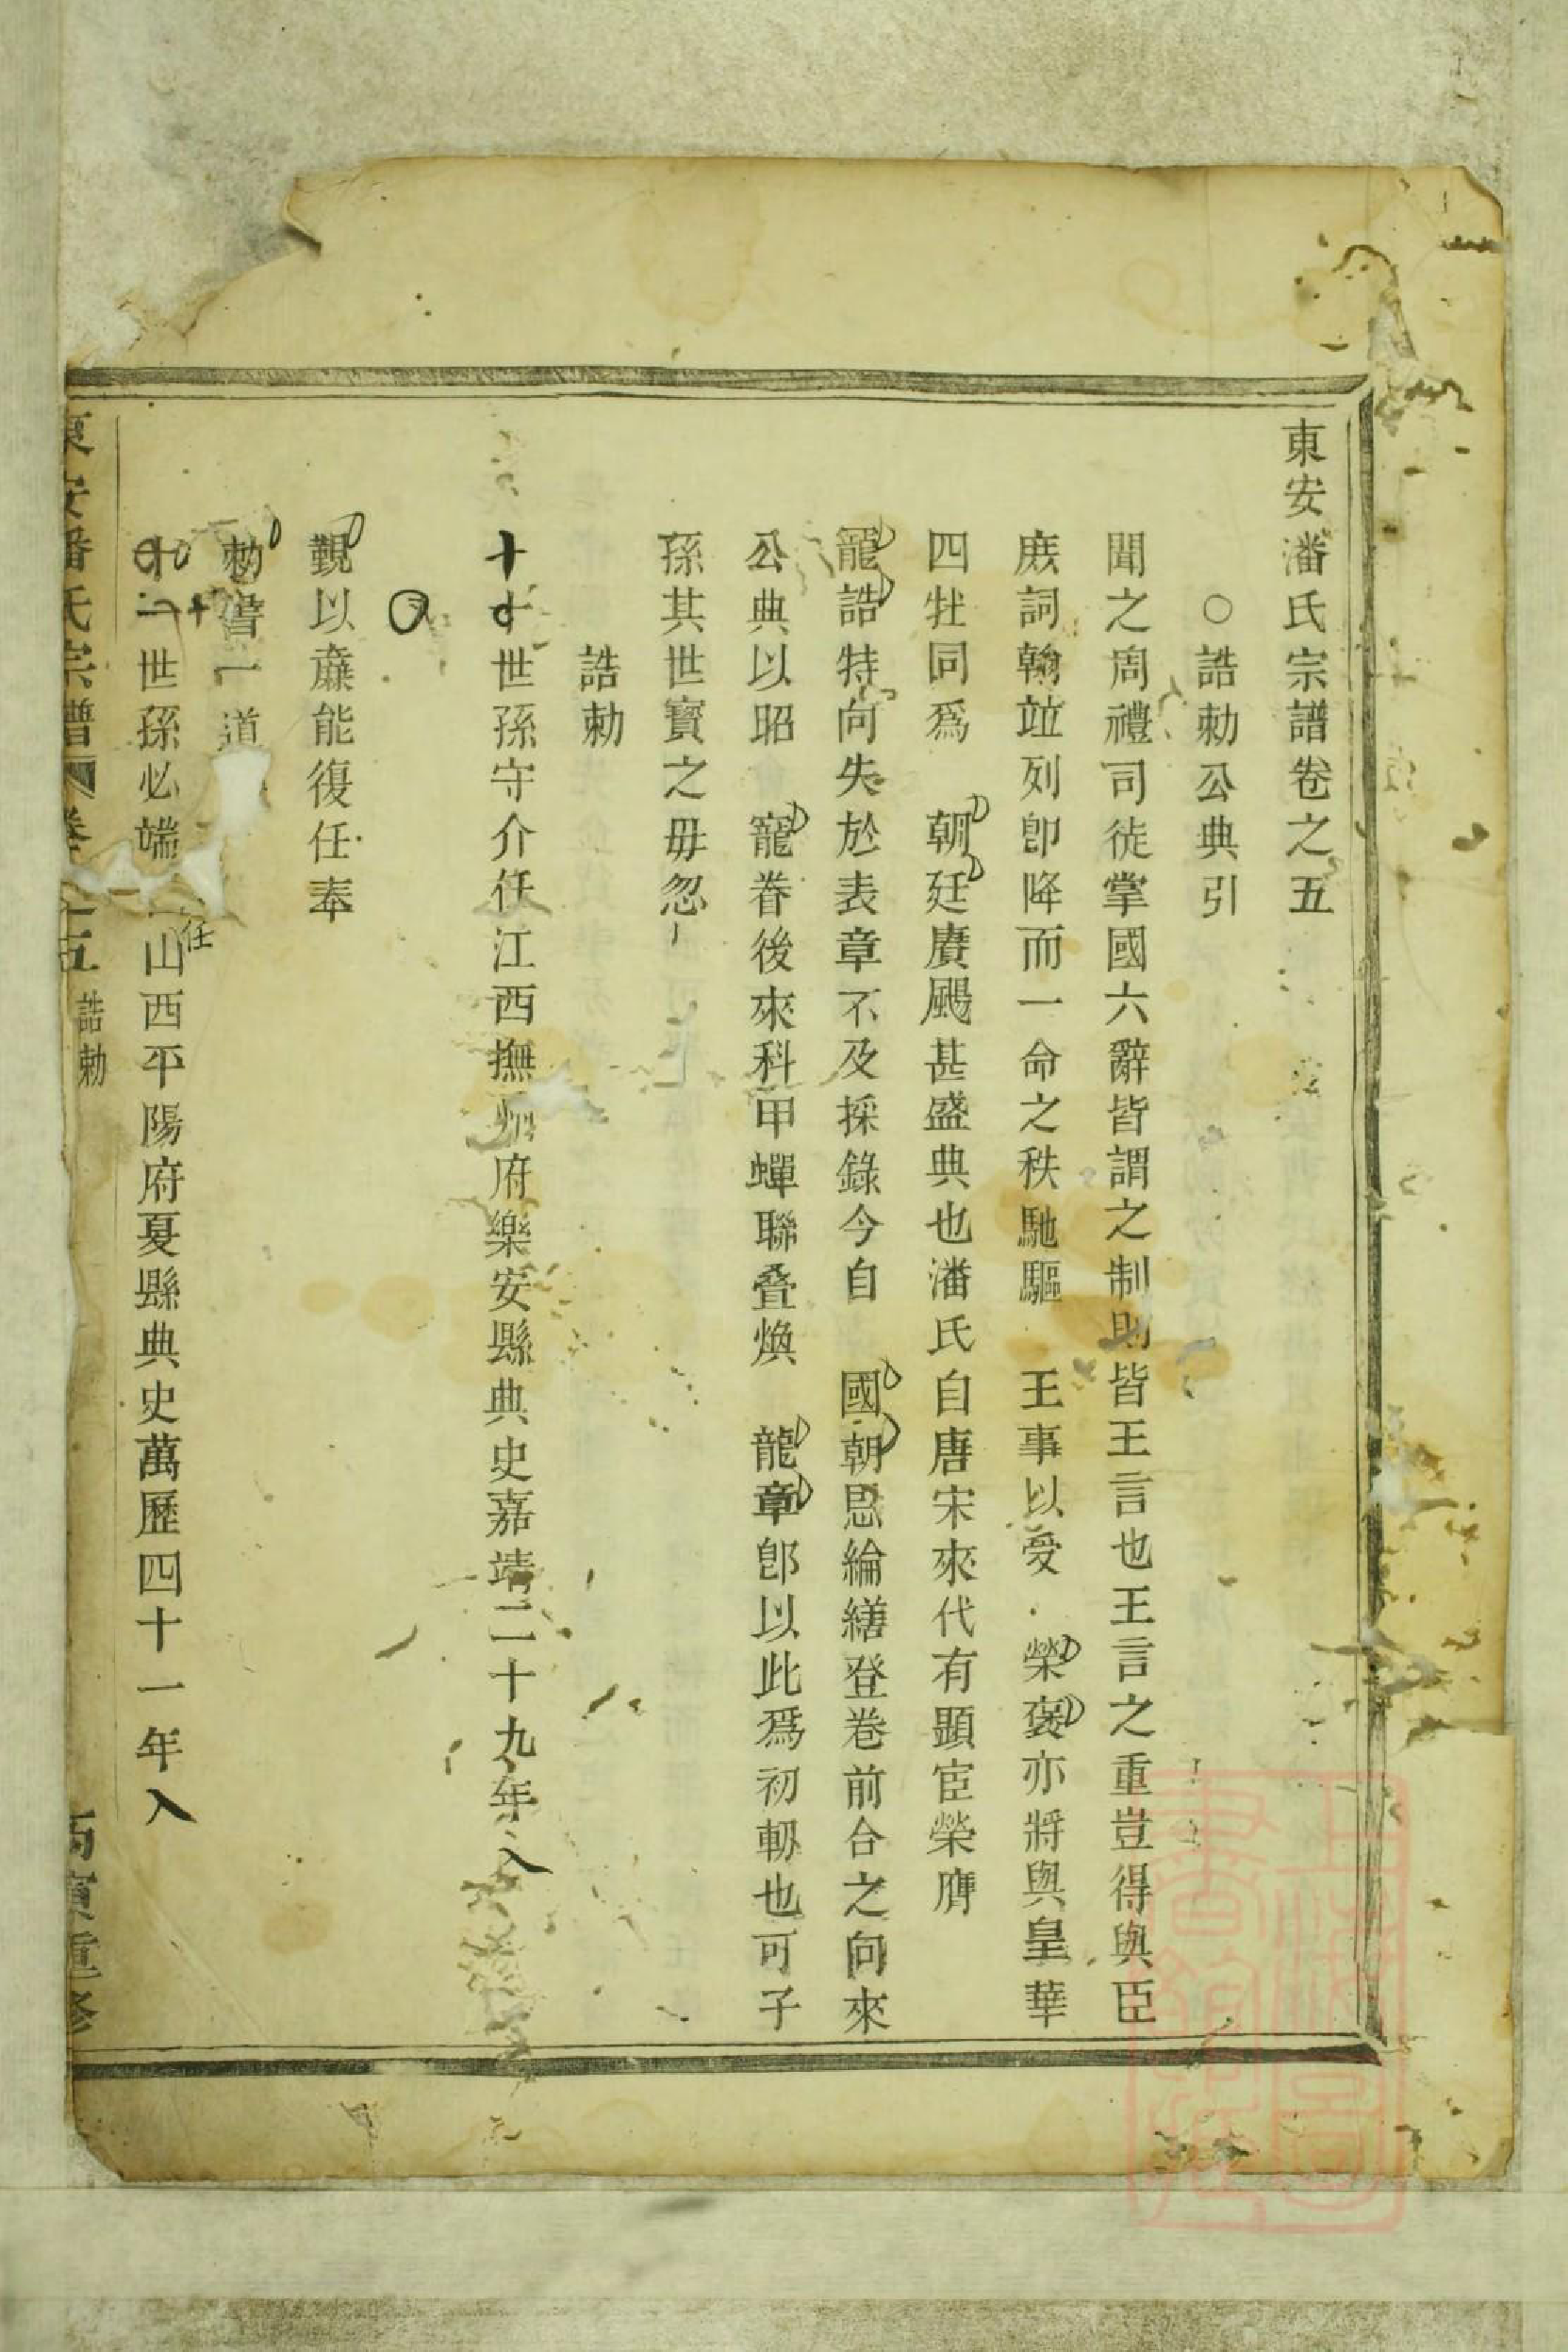 東安潘氏宗譜卷之五
○誥勅公典引
聞之周禮司徒掌國六辭皆謂之制則皆王言也王言之重豈得與臣
庶詞翰竝列卽降而一命之秩馳驅 王事以受 榮褒亦將與皇華
四牡同爲 朝廷賡颺甚盛典也潘氏自唐宋來代有顯宦榮膺
寵誥特向失於表章不及採錄今自 國朝恩綸繕登卷前合之向來
公典以昭 寵眷後來科甲蟬聯叠煥 龍章卽以此爲初軔也可子
孫其世寳之毋忽
誥勅
世孫守介任江西撫州府樂安縣典史嘉靖二十九年入
覲以亷能復任奉
勅書一道
世孫必端任山西平陽府夏縣典史萬歷四十一年入
東安潘氏宗譜 卷之五 誥勅 丙寅重修
上海圖書館藏